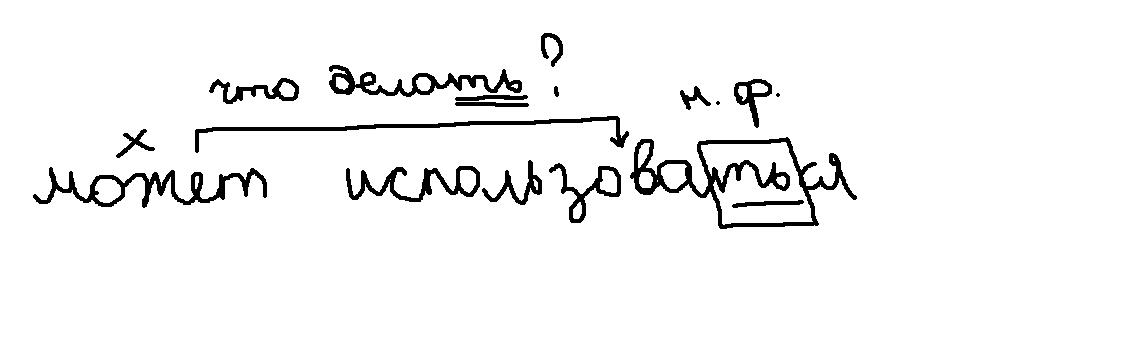 что делать?
н. ф.
х
может использоваться